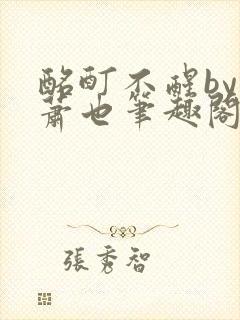 酩酊不醒by
萧也笔趣阁
張秀智